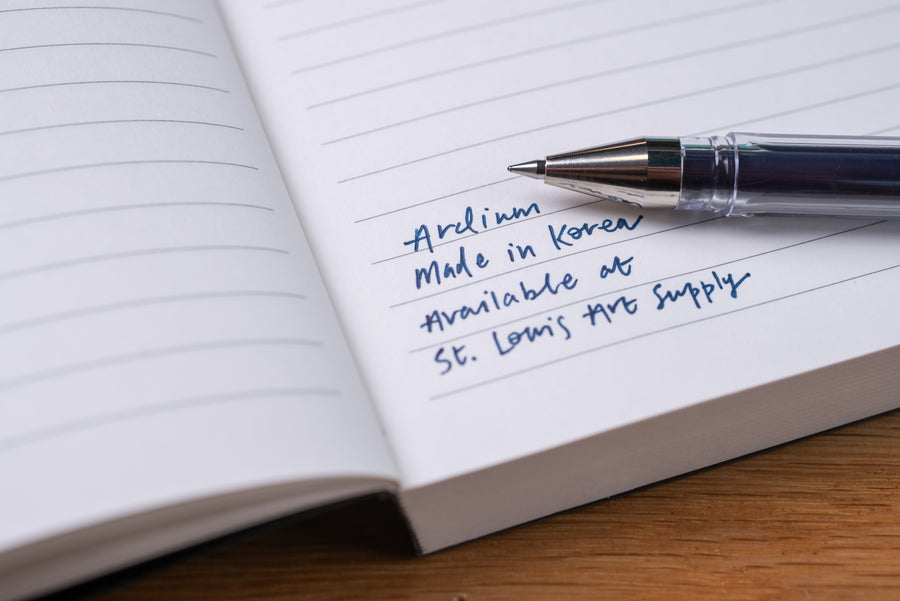 Ardium
Made in Korea
Available at
St. Louis Art Supply